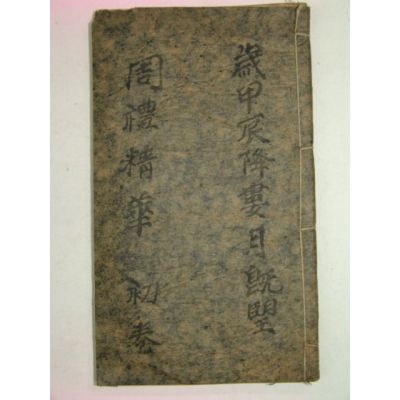 歲甲辰降婁月旣望
周禮精華 初卷